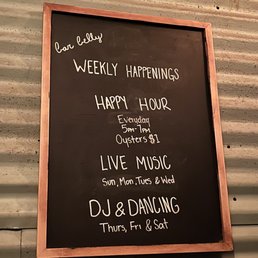 bar belly
WEEKLY HAPPENINGS
HAPPY HOUR
Everyday
5pm-7pm
Oysters $1
LIVE MUSIC
Sun, Mon, Tues & Wed
DJ & DANCING
Thurs, Fri & Sat